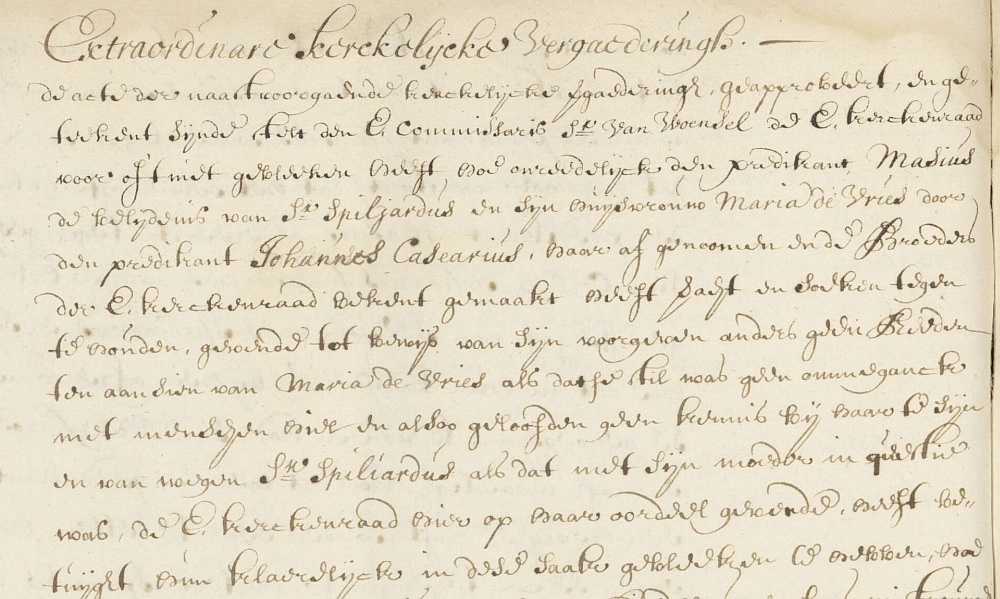 Extraordinare kerckelijcke Vergaederingh.
de acte der naastvoorgaende kerckelijcke vergaedering, geapprobeert, en ge-
teekent synde, stelt den E. Commissaris Sr. Van Woensel de E. kerckenraad
voor oft niet gebleeken heeft, hoe onreedelyck den predikant Masius
de belydenis van Sr. Spiljardus en syn huysvrouw Maria de Vries door
den predikant Johannes Casearius, haar af genoomen en de Broeders
der E. kerckenraad bekent gemaakt heeft en soeken tegen
te houden, gevende tot bewys van syn voorgeven anders geen Reeden
ten aansien van Maria de Vries als dat se stil was geen ommeganck
met menschen hiel en alsoo geloofden geen kennis by haar te syn
en van wegen Sr. Spiliardus als dat met syn moeder in questie
was, de E. kerckenraad hier op haar oordeel gevende, heeft be-
tuyght hun klaerelyck in dese saake gebleeken te hebben, hoe